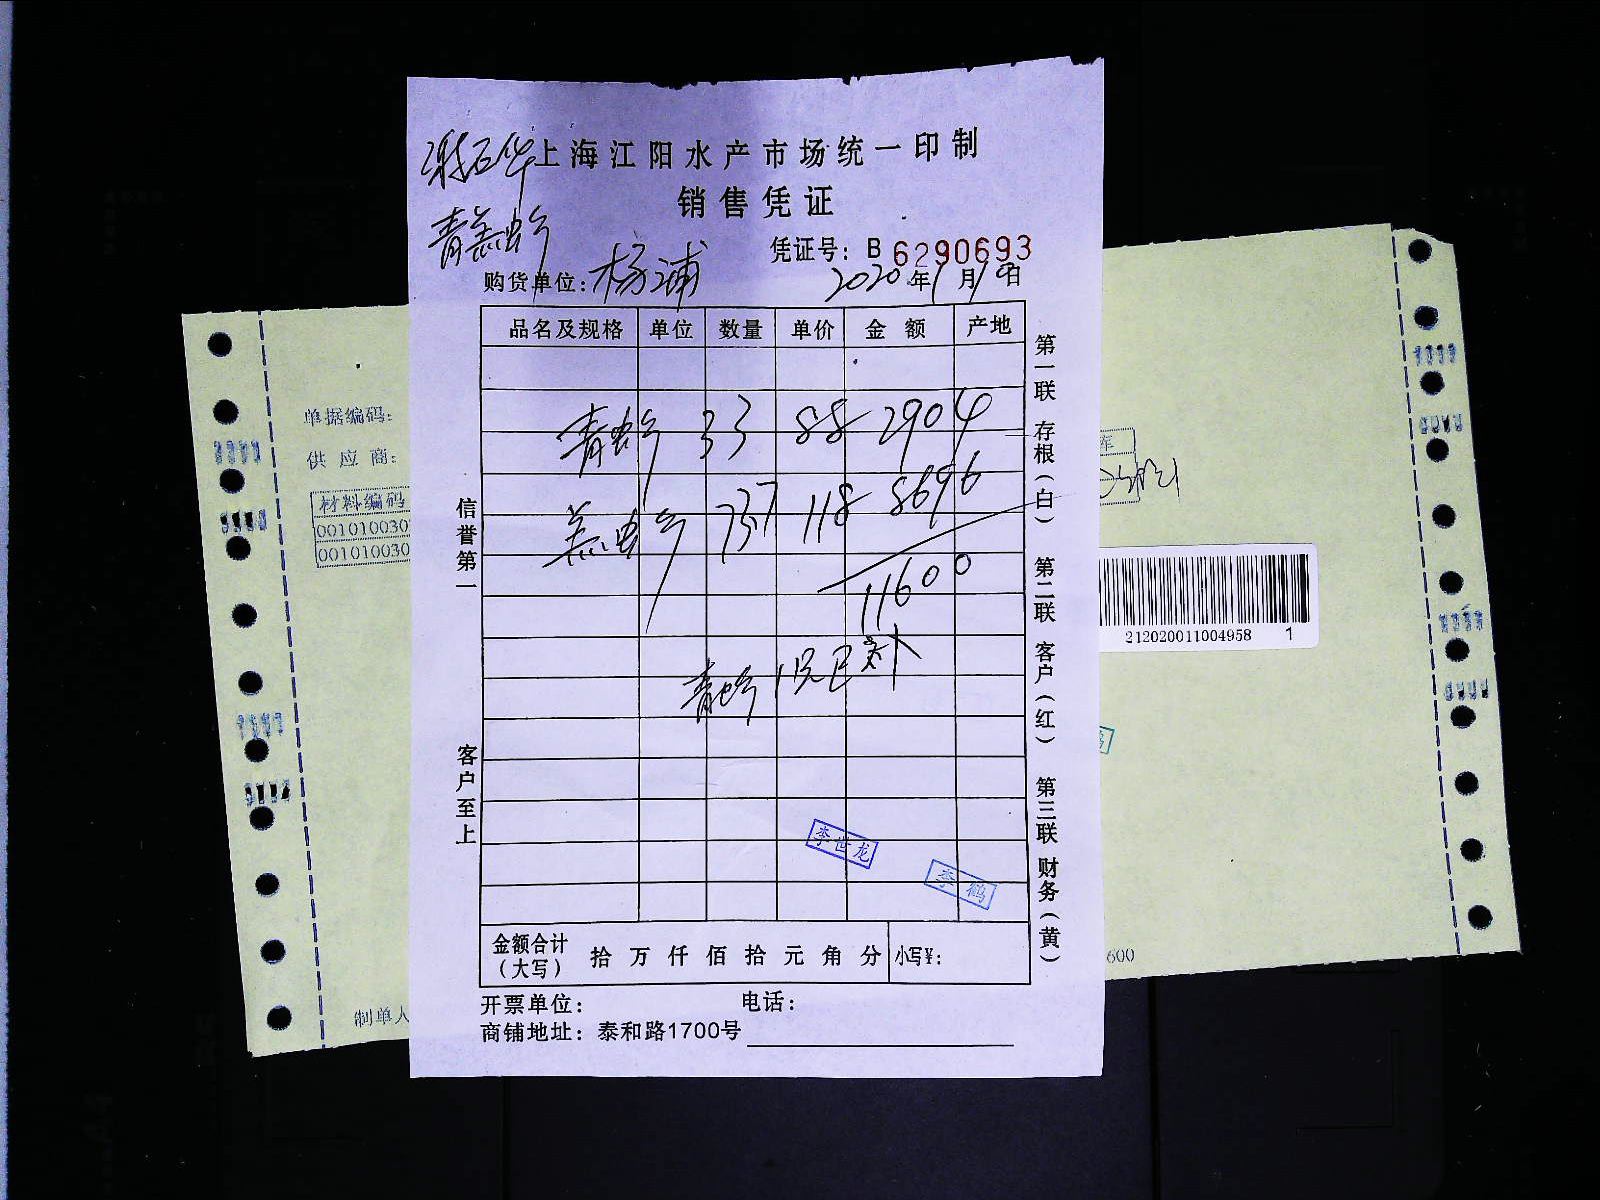 谢石华
上海江阳水产市场统一印制
销售凭证
青羔蟹
凭证号：B 6290693
购货单位：杨浦
2020年1月19日
品名及规格 单位 数量 单价 金额 产地
青蟹 33 88 2904
羔蟹 73.7 118 8696
11600
青蟹 1只已补
李世龙
李鹤
金额合计（大写） 拾 万 仟 佰 拾 元 角 分 小写¥：
开票单位： 电话：
商铺地址：泰和路1700号
信誉第一
客户至上
第一联 存根（白） 第二联 客户（红） 第三联 财务（黄）
单据编码：
供应商：
材料编码
001010030
001010030
制单人
库
212020011004958 1
600